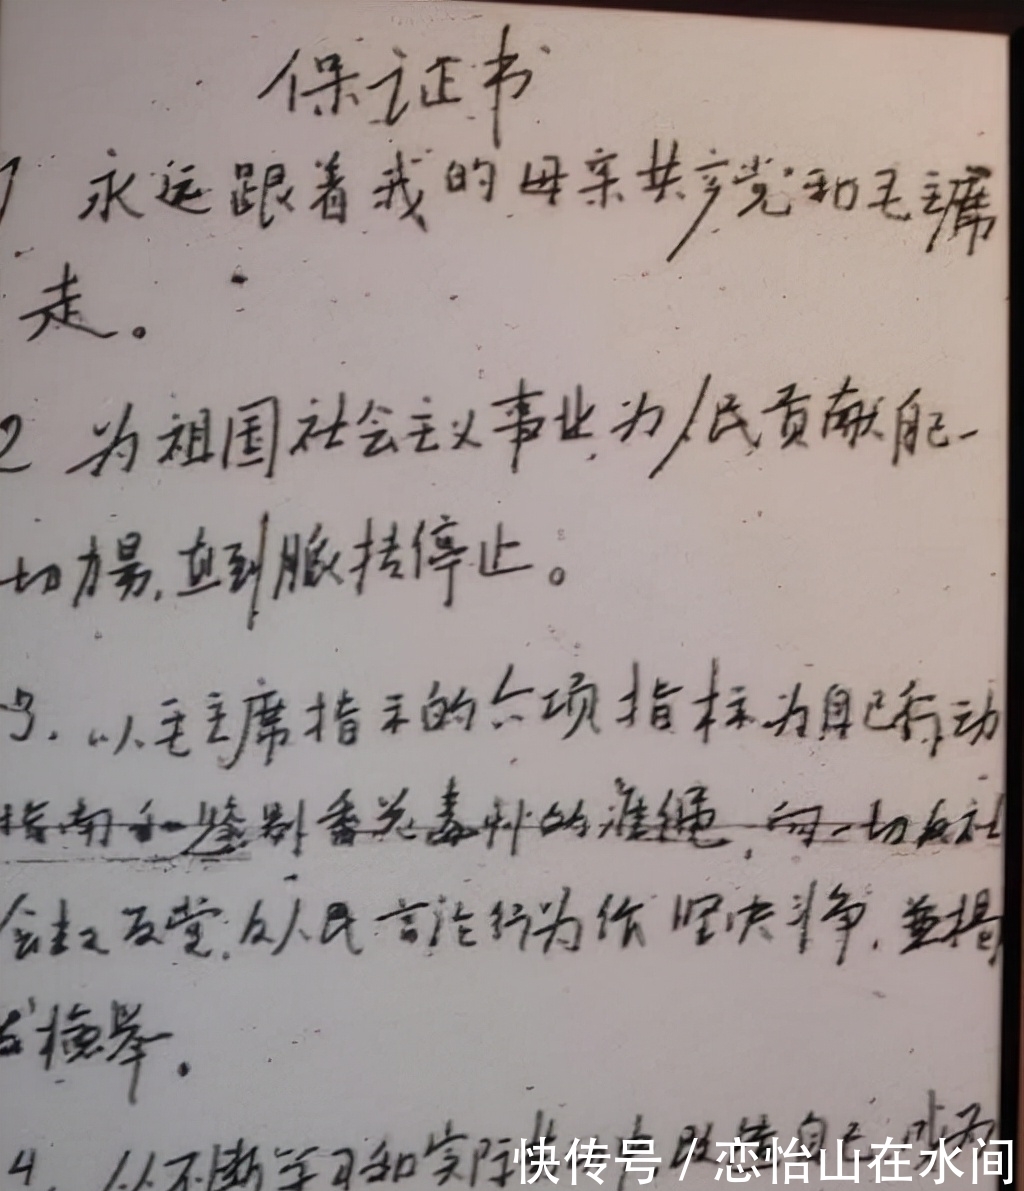 保证书
1 永远跟着我的母亲共产党和毛主席
走。
2 为祖国社会主义事业为人民贡献自己一
切力量,直到脉搏停止。
3. 以毛主席指示的六项指标为自己行动
指南和鉴别香花毒草的准绳,向一切反社
会主义反党,反人民言论行为作坚决斗争,並揭
发検举。
4. 从不断学习和实际
快传号/恋怡山在水间